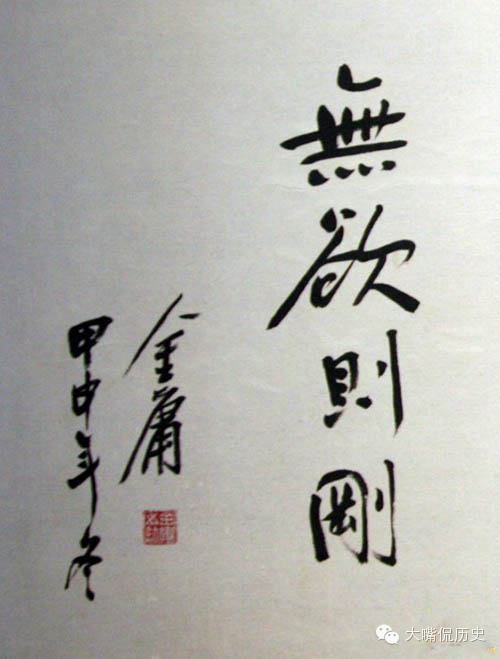 無欲則剛
金庸
甲申年冬
大嘴侃历史